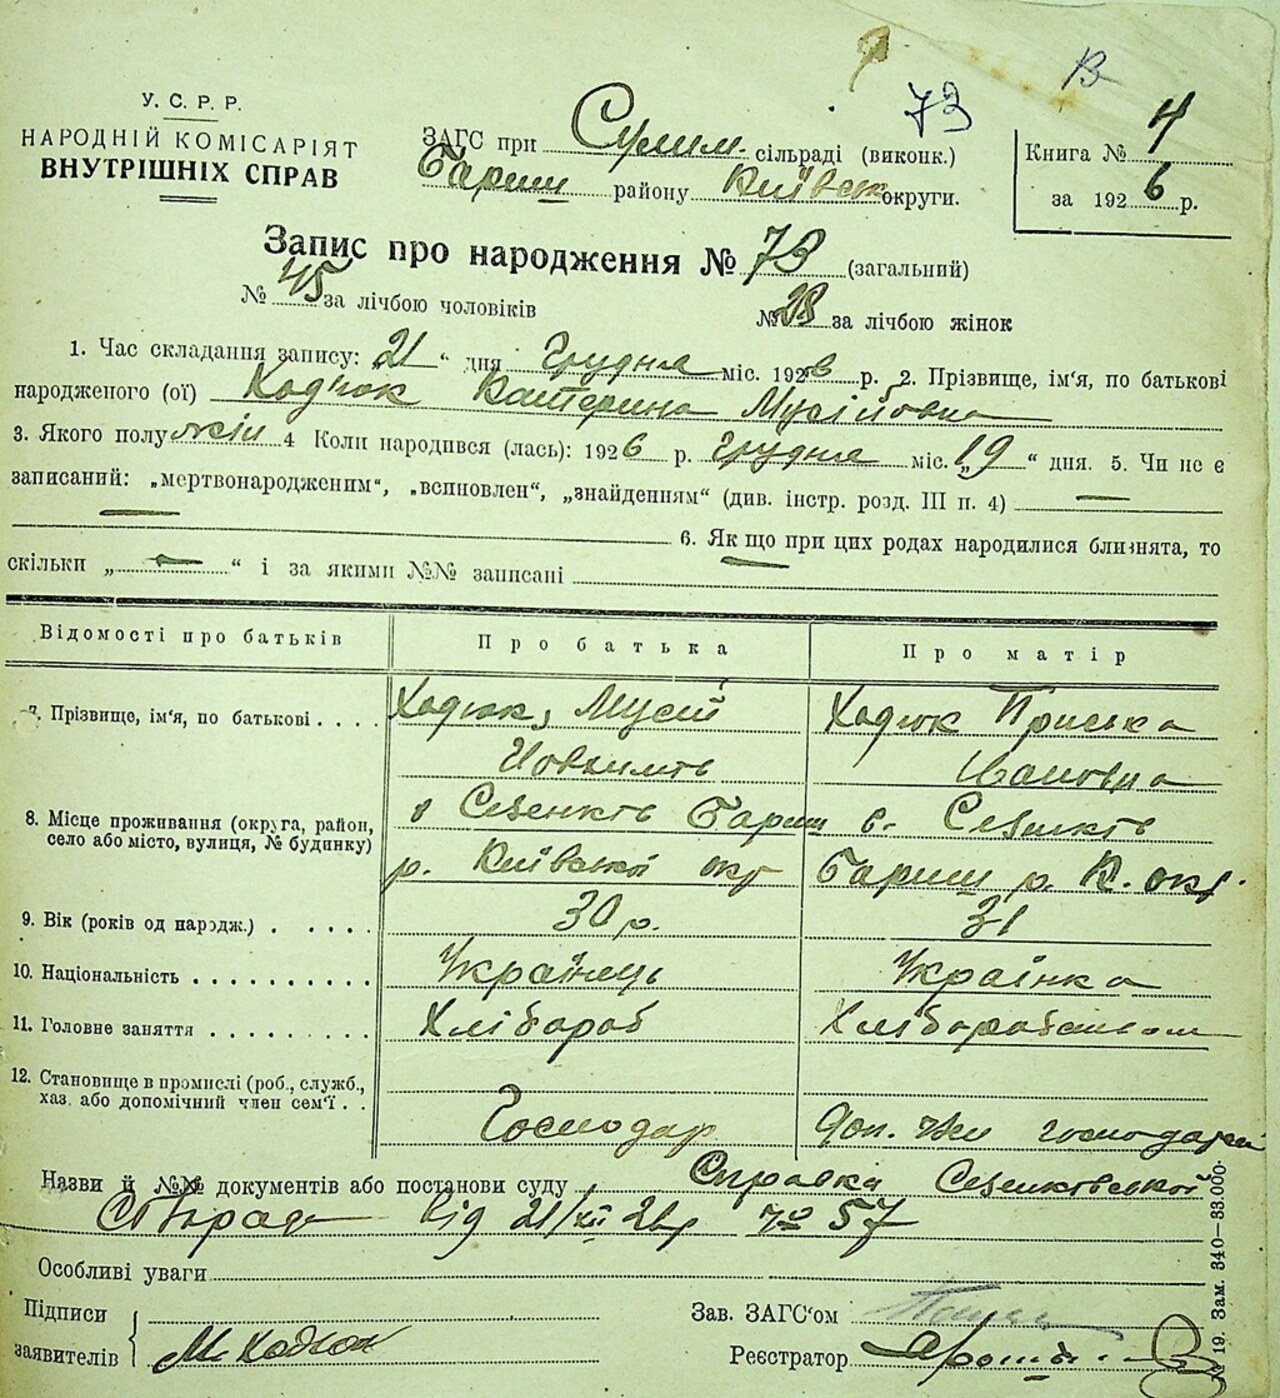 В
73
У. С. Р. Р.
НАРОДНІЙ КОМІСАРІЯТ
ВНУТРІШНІХ СПРАВ
ЗАГС при Сулим. сільраді (виконк.)
Бариш району Київськ округи.
Книга № 4
за 1926 р.
Запис про народження № 73 (загальний)
№ 45 за лічбою чоловіків № 28 за лічбою жінок
1. Час складання запису: 21 “ дня Грудня міс. 1926 р. 2. Прізвище, ім'я, по батькові
народженого (ої) Ходюк Катерина Мусіївна
3. Якого полу жін 4 Коли народився (лась): 1926 р. Грудня міс. „19“ дня. 5. Чи не є
записаний: „мертвонародженим“, „всиновлен“, „знайденням“ (див. інстр. розд. III п. 4) —
6. Якщо при цих родах народилися близнята, то
скільки „ — “ і за якими №№ записані
Відомості про батьків Про батька Про матір
7. Прізвище, ім'я, по батькові . . . . Ходюк, Мусій Ходюк Приська
Івановна
8. Місце проживання (округа, район, с Сезенків Бариш с. Сезенків
село або місто, вулиця, № будинку) р. Київської окр Бариш р. К. окр.
9. Вік (років од народж.) . . . . . 30 р. 31
10. Національність . . . . . . . . . . Українець Українка
11. Головне заняття . . . . . . . . Хлібороб
12. Становище в промислі (роб., служб.,
хаз. або допомічний член сем'ї . . Господар Доп. чл господарки
Назви й №№ документів або постанови суду Справка Сезенківської
Сільради від 21/XII 26 р № 57
Особливі уваги
Підписи
заявителів М Ходюк
Зав. ЗАГС'ом
Реєстратор
№ 19. Зам. 340—83.000.